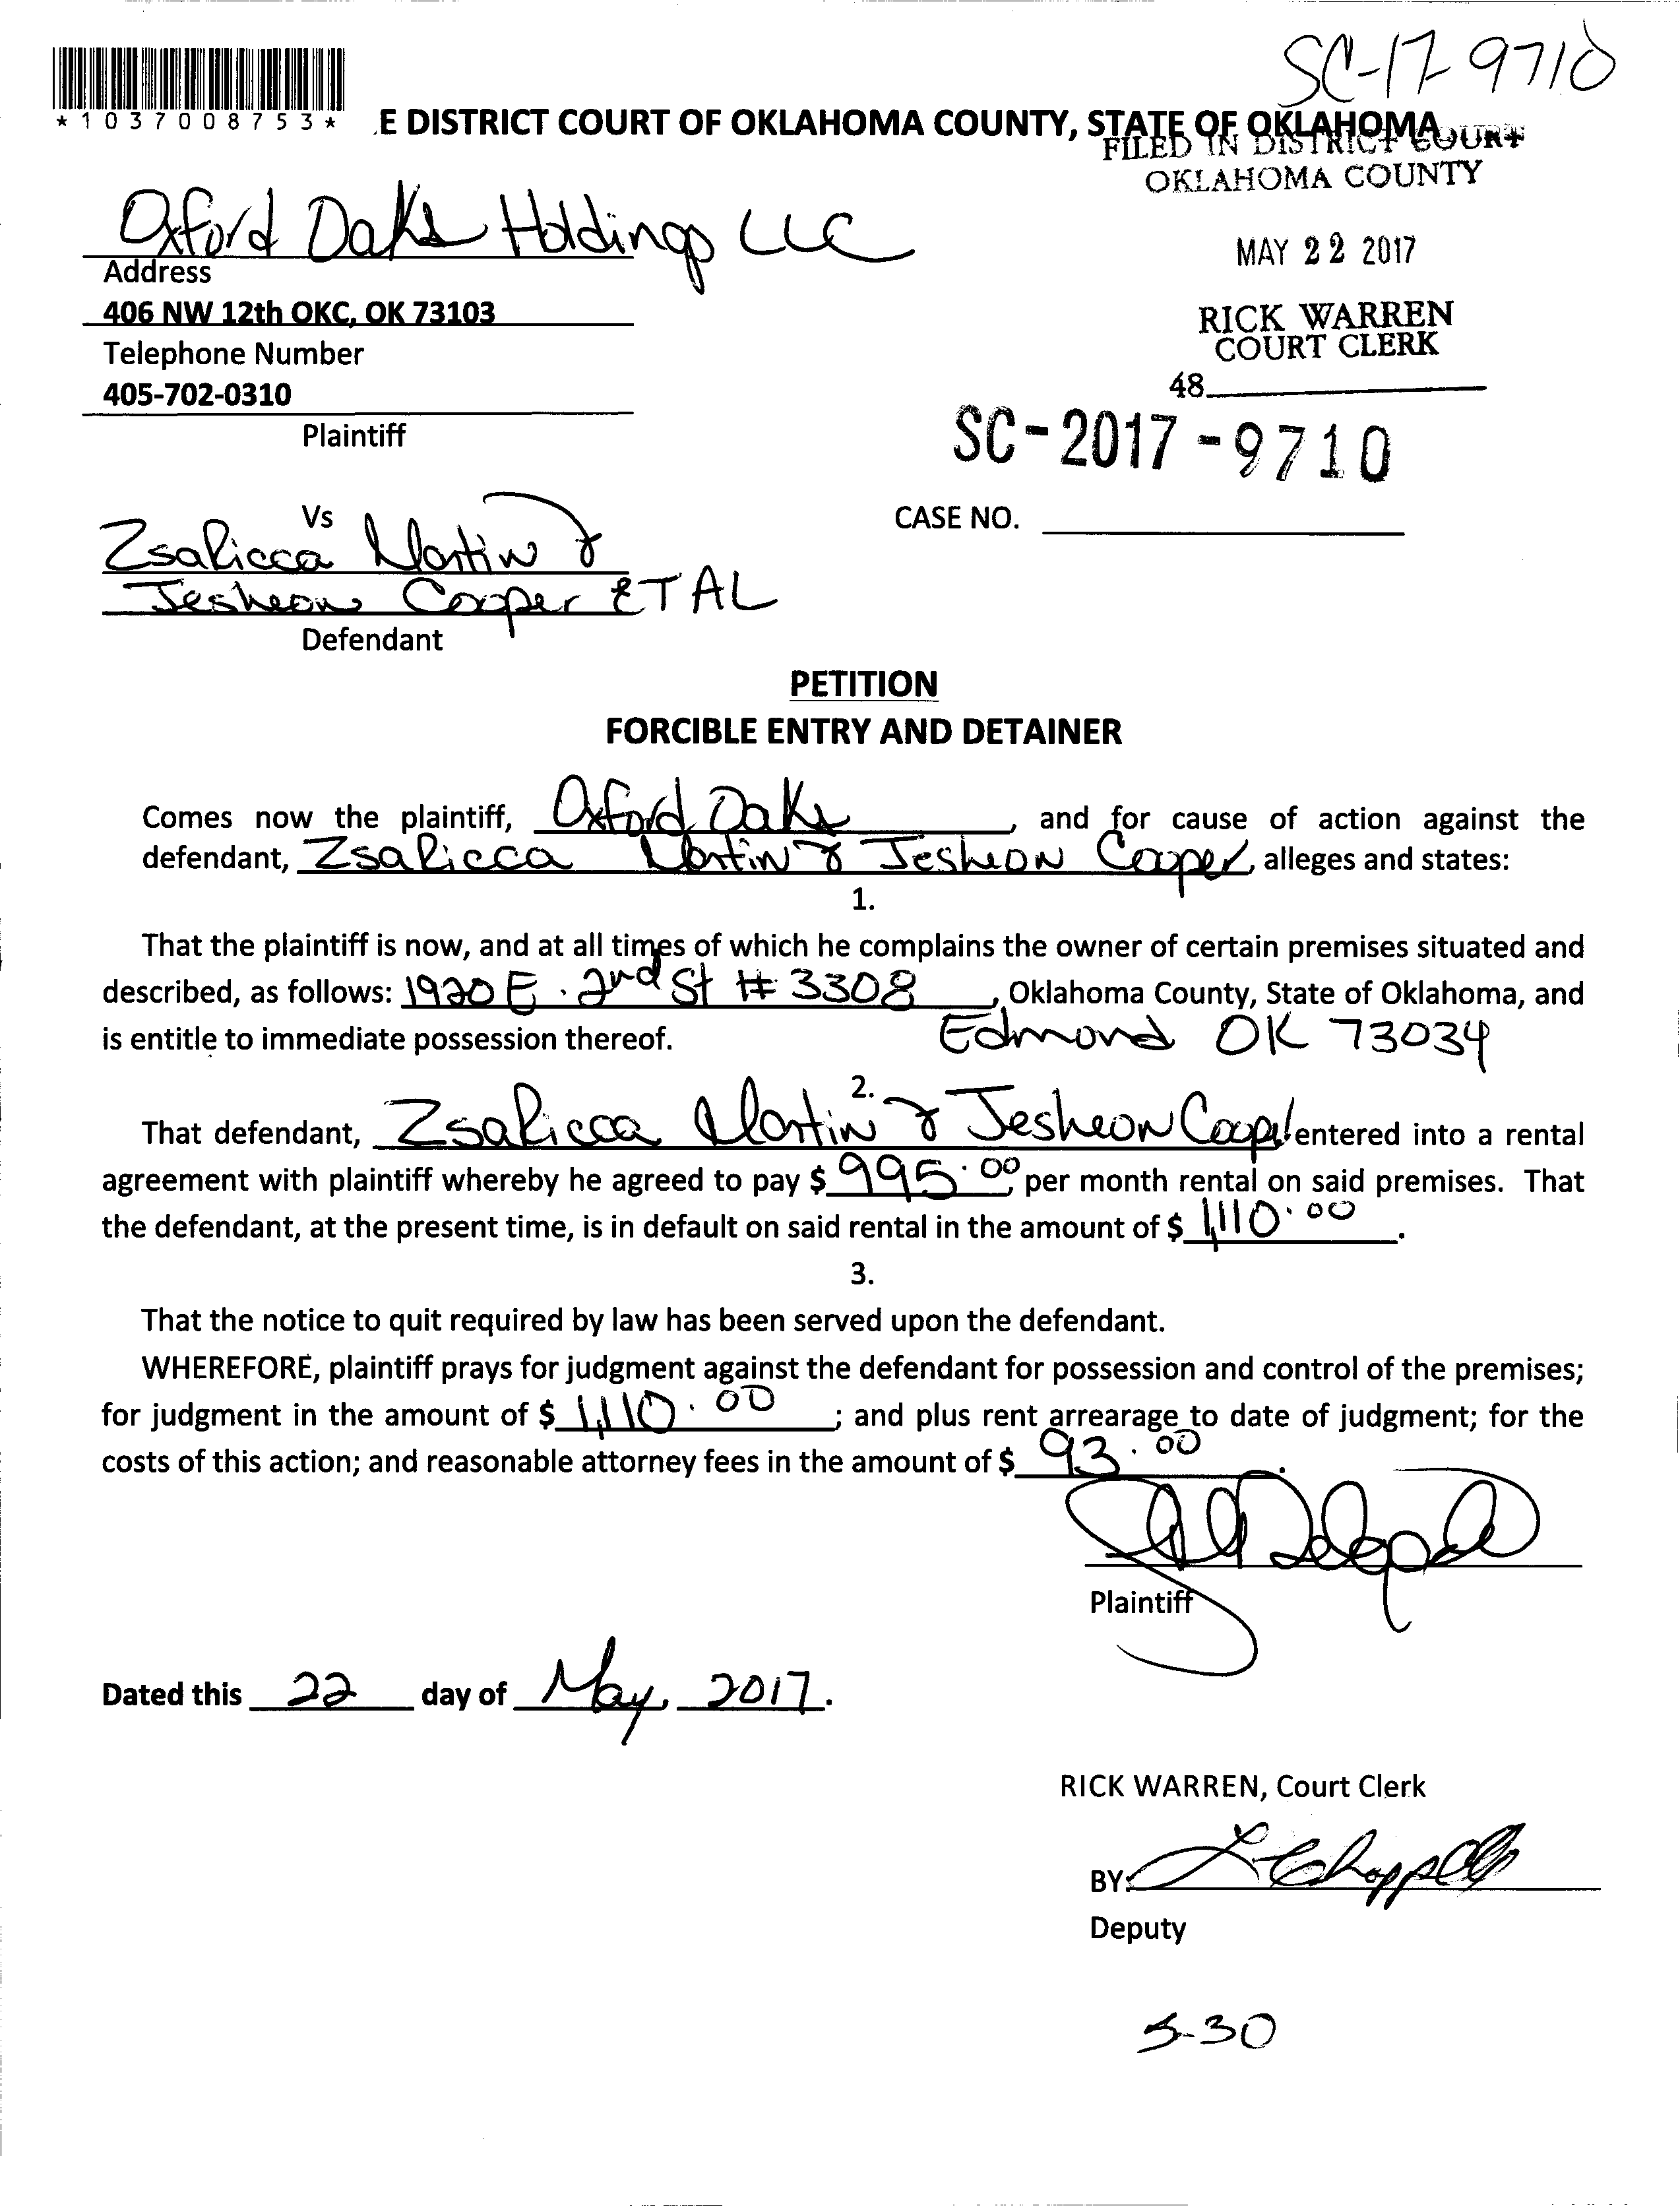 SC-17-9710
*1037008753*
E DISTRICT COURT OF OKLAHOMA COUNTY, STATE OF OKLAHOMA
FILED IN DISTRICT COURT
OKLAHOMA COUNTY
Oxford Oaks Holdings LLC
MAY 22 2017
Address
406 NW 12th OKC, OK 73103
RICK WARREN
COURT CLERK
Telephone Number
48
405-702-0310
Plaintiff
SC-2017-9710
Vs
CASE NO.
Zsaricca Martin &
Jesheon Cooper ET AL
Defendant
PETITION
FORCIBLE ENTRY AND DETAINER
Comes now the plaintiff, Oxford Oaks, and for cause of action against the
defendant, Zsaricca Martin & Jesheon Cooper, alleges and states:
1.
That the plaintiff is now, and at all times of which he complains the owner of certain premises situated and
described, as follows: 1920 E. 2nd St # 3308, Oklahoma County, State of Oklahoma, and
is entitle to immediate possession thereof. Edmond OK 73034
2.
That defendant, Zsaricca Martin & Jesheon Cooper entered into a rental
agreement with plaintiff whereby he agreed to pay $ 995.00, per month rental on said premises. That
the defendant, at the present time, is in default on said rental in the amount of $ 1,110.00.
3.
That the notice to quit required by law has been served upon the defendant.
WHEREFORE, plaintiff prays for judgment against the defendant for possession and control of the premises;
for judgment in the amount of $ 1,110.00; and plus rent arrearage to date of judgment; for the
costs of this action; and reasonable attorney fees in the amount of $ 93.00.
Plaintiff
Dated this 22 day of May, 2017.
RICK WARREN, Court Clerk
BY:
Deputy
5-30